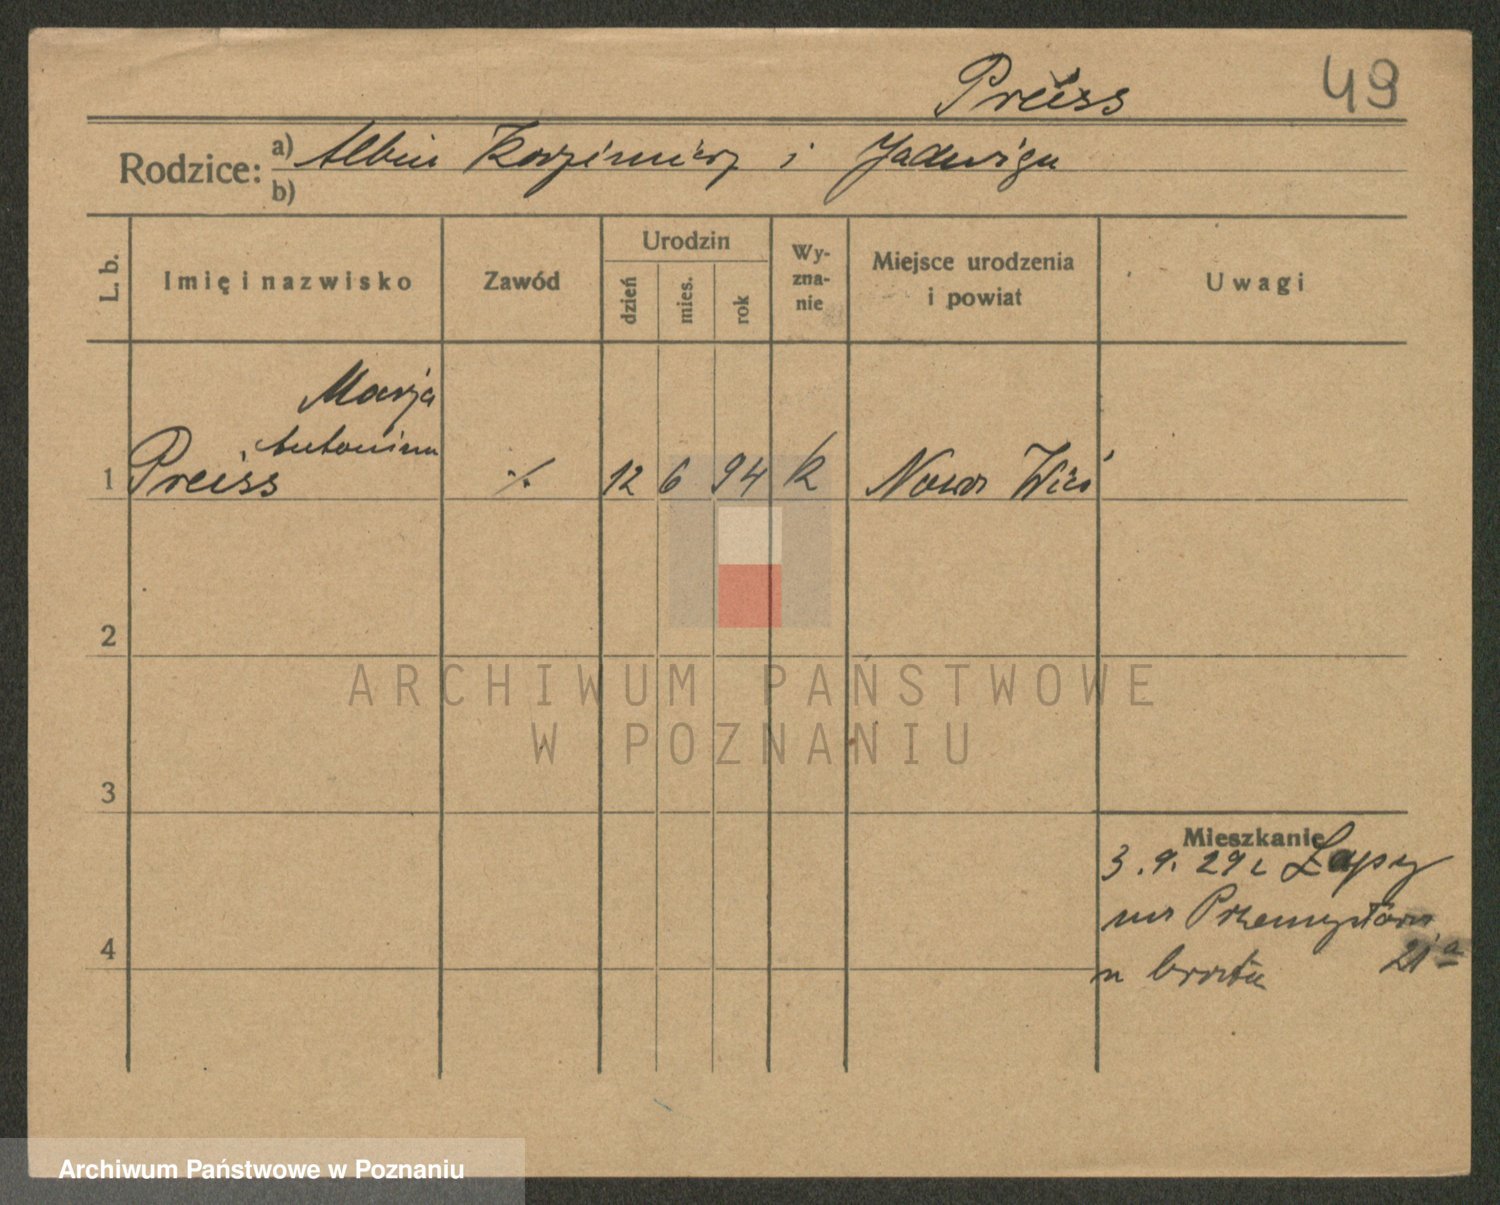 Preiss
49
Rodzice: a) Albin Kazimierz i Jadwiga
b)
L. b.
Imię i nazwisko
Zawód
Urodzin
dzień
mies.
rok
Wy-
zna-
nie
Miejsce urodzenia
i powiat
Uwagi
Marja
Antonina
1 Preiss
·/. 12 6 94 k Nowa Wieś
2
ARCHIWUM PAŃSTWOWE
W POZNANIU
3
Mieszkanie
3.9.29 z Łapy
na Przemysłowa
21a
4
u brata
Archiwum Państwowe w Poznaniu